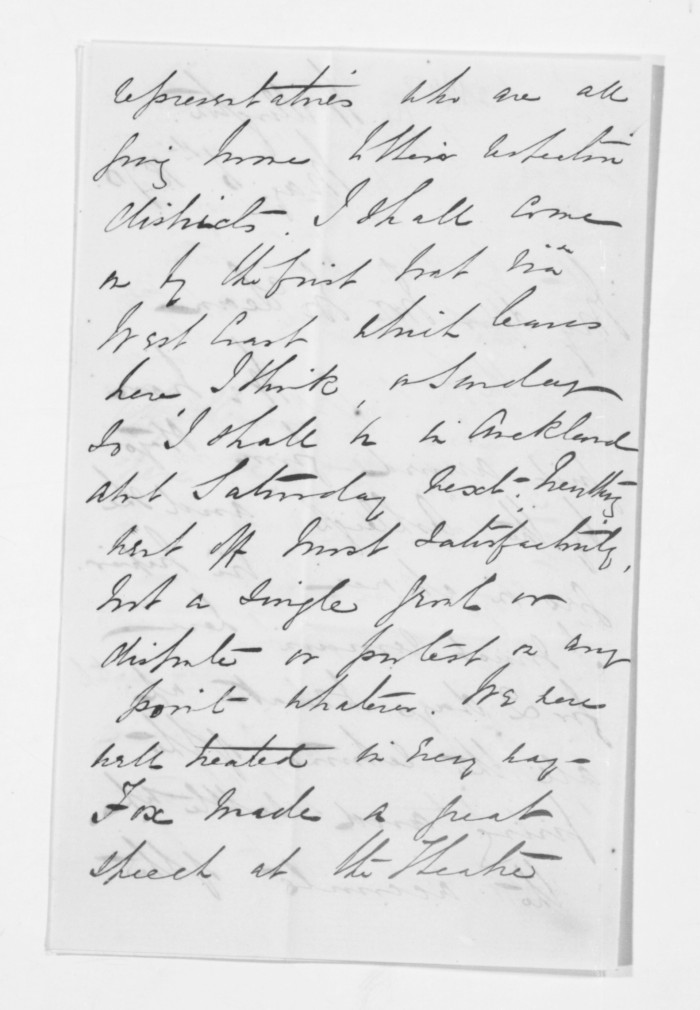 representatives who are all
going home to their respective
districts. I shall come
on by the first boat via
West Coast which leaves
here, I think, on Sunday
so I shall be in Auckland
abt Saturday next. Everything
went off most satisfactorily,
not a single growl or
dispute or protest on any
point whatever. We were
well treated in every way -
Fox made a great
speech at the Theatre